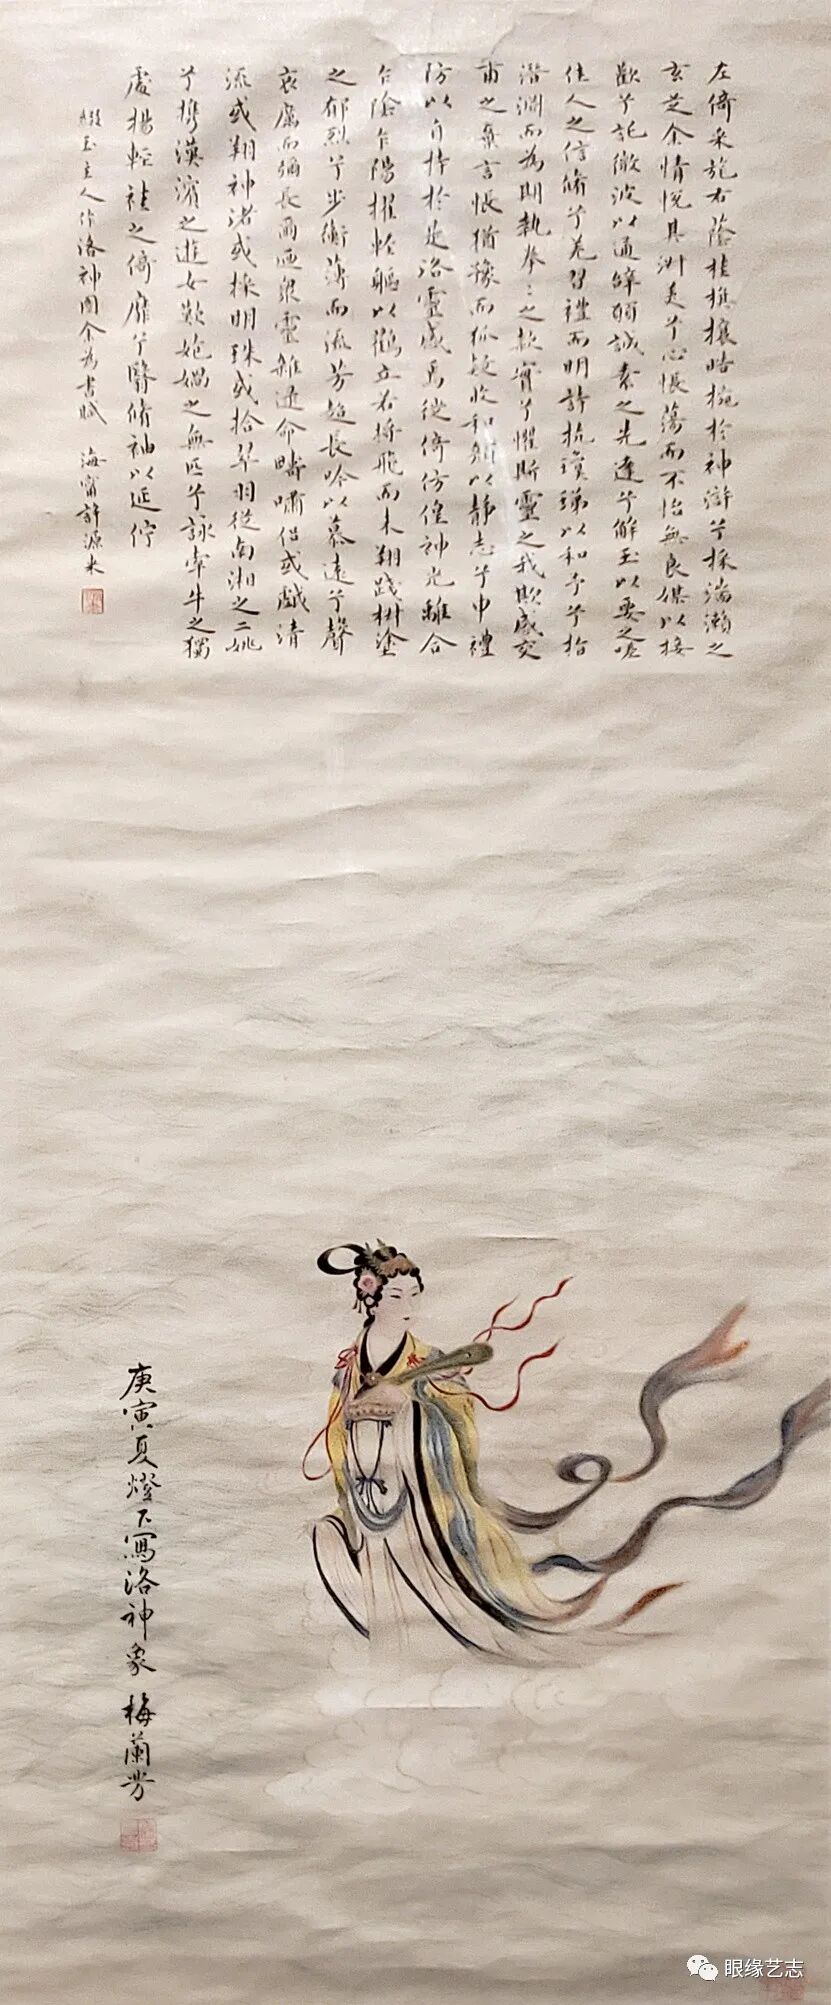 左倚采旄右蔭桂旗攘皓腕於神滸兮採湍瀨之
玄芝余情悅其淑美兮心悵蕩而不怡無良媒以接
歡兮託微波以通辭願誠素之先達兮解玉以要之嗟
佳人之信脩兮羌習禮而明詩抗瓊珶以和予兮指
潛淵而為期執眷〻之款實兮懼斯靈之我欺感交
甫之棄言悵猶豫而狐疑收和顏以靜志兮申禮
防以自持於是洛靈感焉徙倚仿偟神光離合
乍陰乍陽擢輕軀以鶴立若將飛而未翔踐椒塗
之郁烈兮步蘅薄而流芳超長吟以慕遠兮聲
哀厲而彌長爾迺衆靈雜遝命疇嘯侶或戲清
流或翔神渚或採明珠或拾翠羽從南湘之二姚
兮攜漢濱之遊女歎媧之無匹兮詠牽牛之獨
處揚輕袿之倚靡兮翳脩袖以延佇
綴玉主人作洛神圖余為書賦 海甯許源來
庚寅夏燈下寫洛神象 梅蘭芳
眼缘艺志